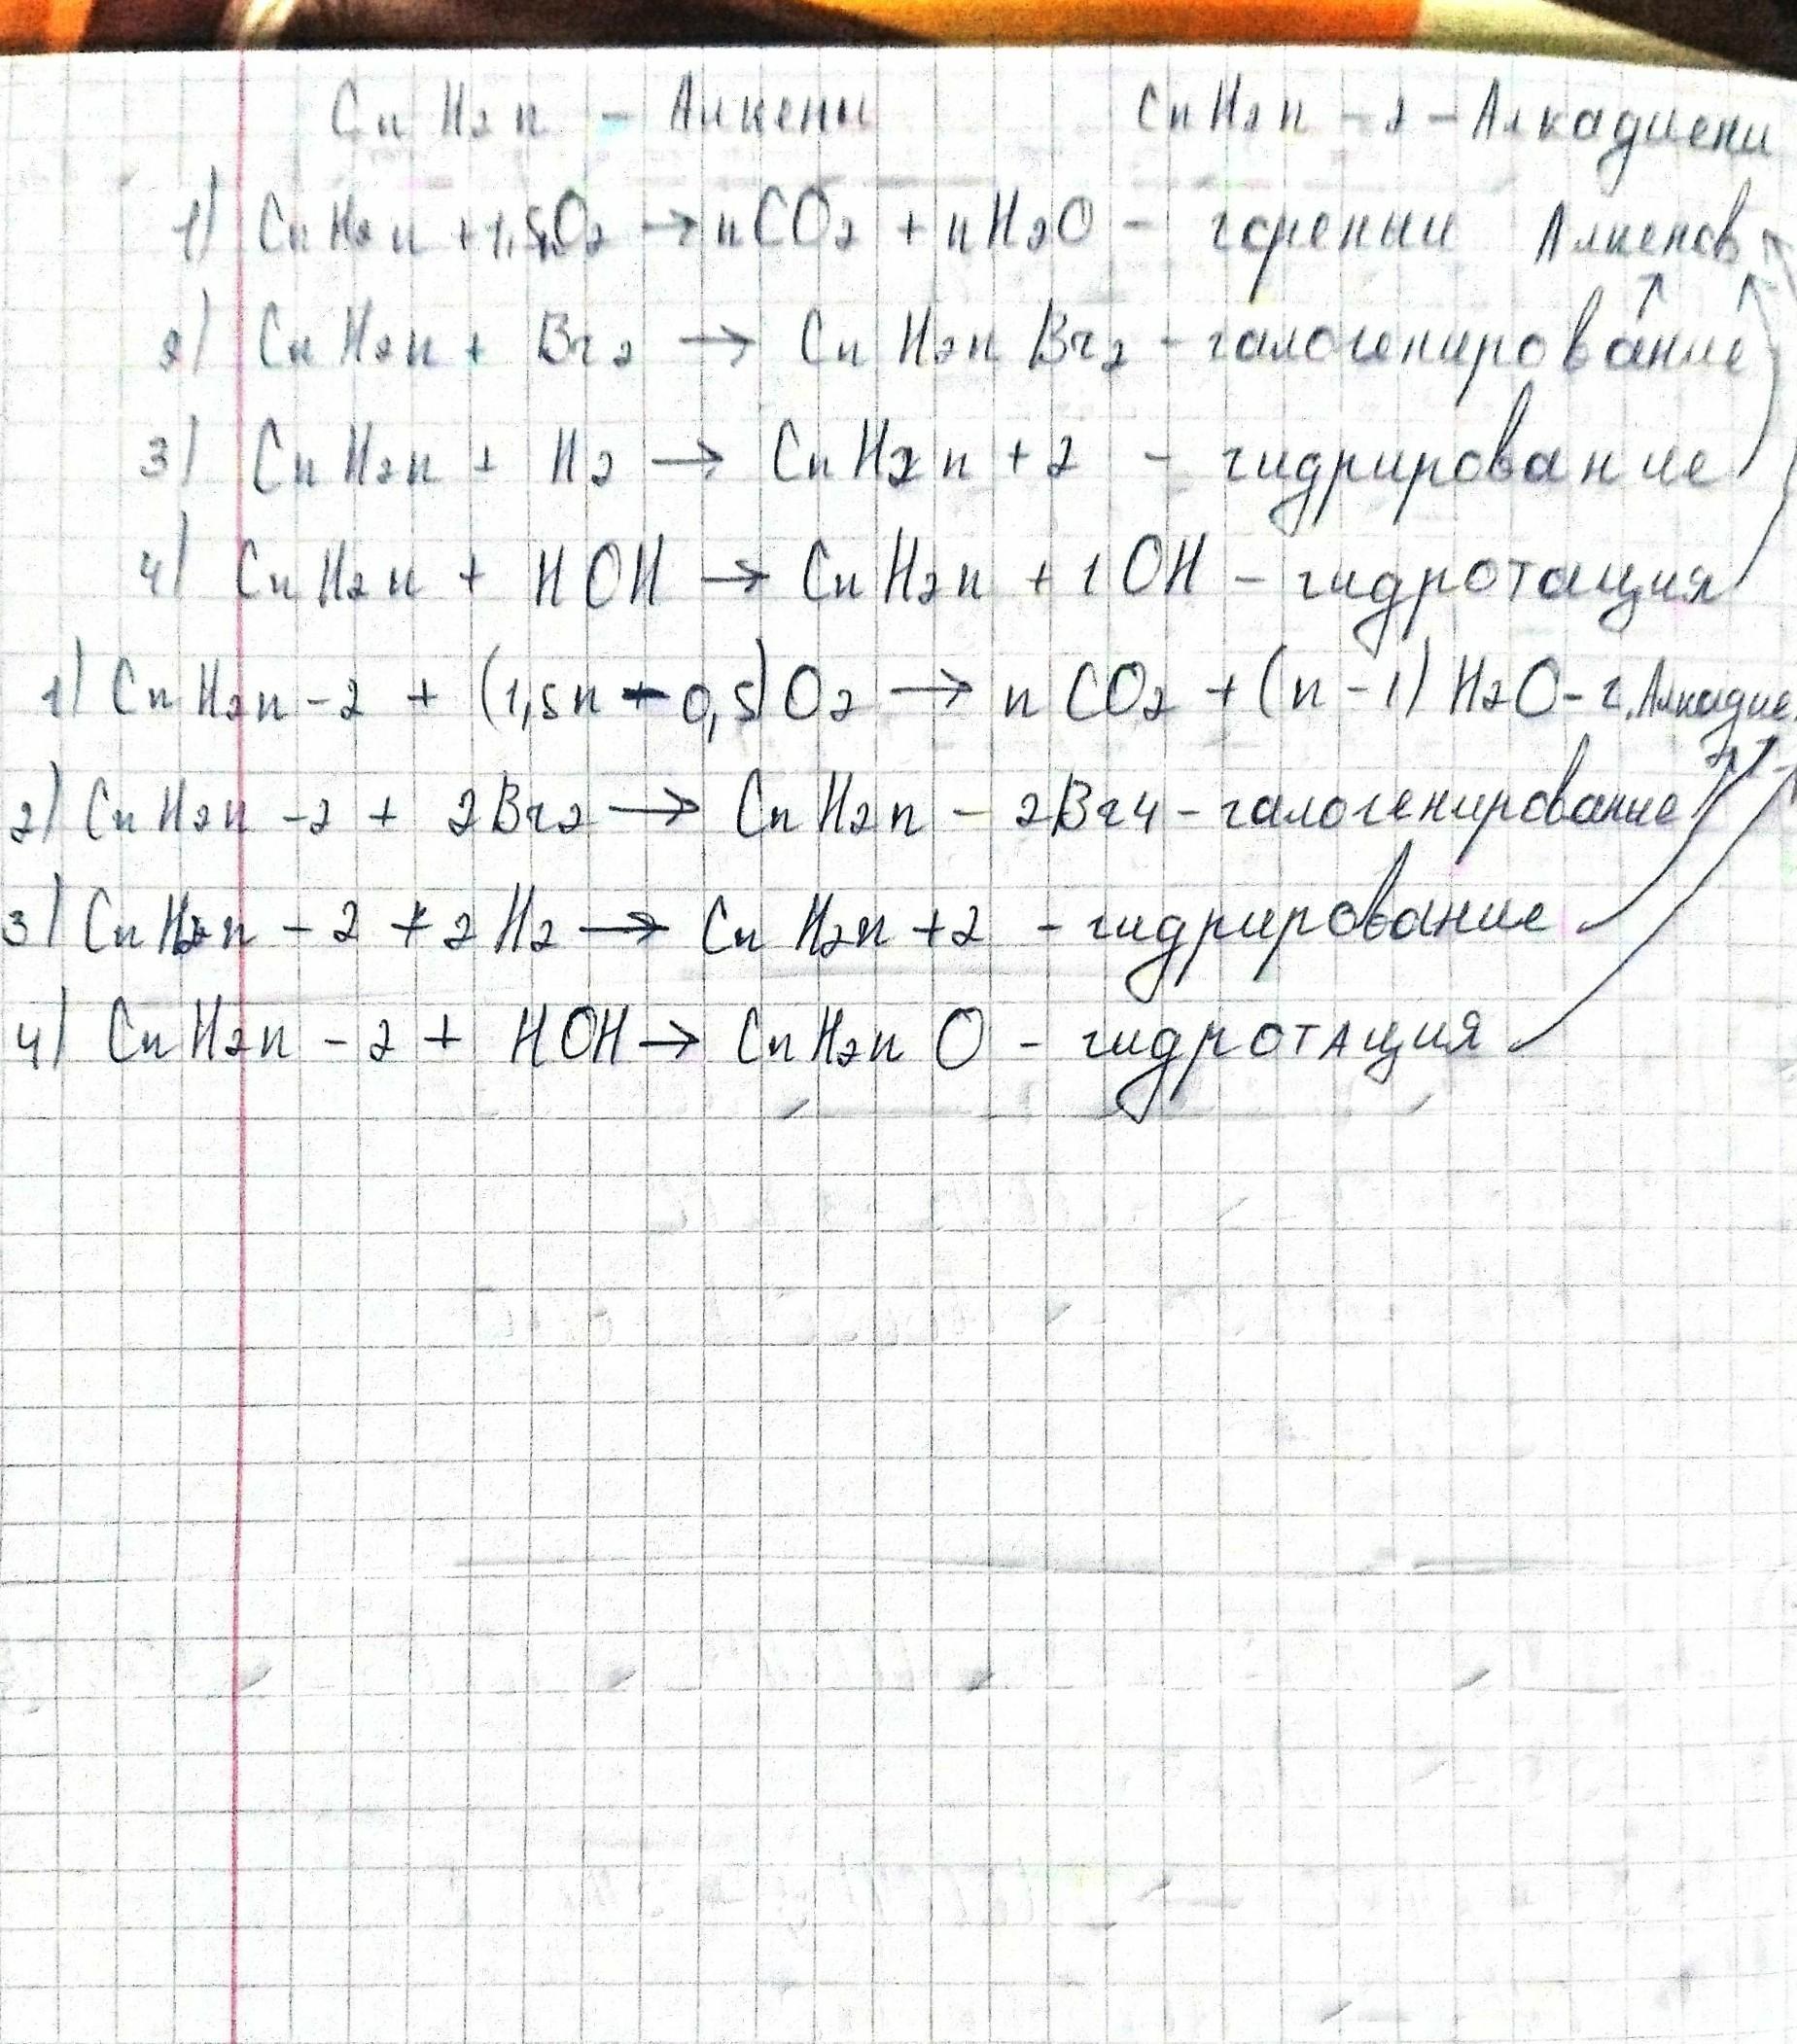 CnH2n - Алкены CnH2n-2 - Алкадиены
1) CnH2n + 1,5O2 → nCO2 + nH2O - горении Алкенов
2) CnH2n + Br2 → CnH2nBr2 - галогенирование
3) CnH2n + H2 → CnH2n+2 - гидрирование
4) CnH2n + HOH → CnH2n+1OH - гидротация
1) CnH2n-2 + (1,5n-0,5)O2 → nCO2 + (n-1)H2O - г. Алкадие.
2) CnH2n-2 + 2Br2 → CnH2n-2Br4 - галогенирование
3) CnH2n-2 + 2H2 → CnH2n+2 - гидрирование
4) CnH2n-2 + HOH → CnH2nO - гидротация